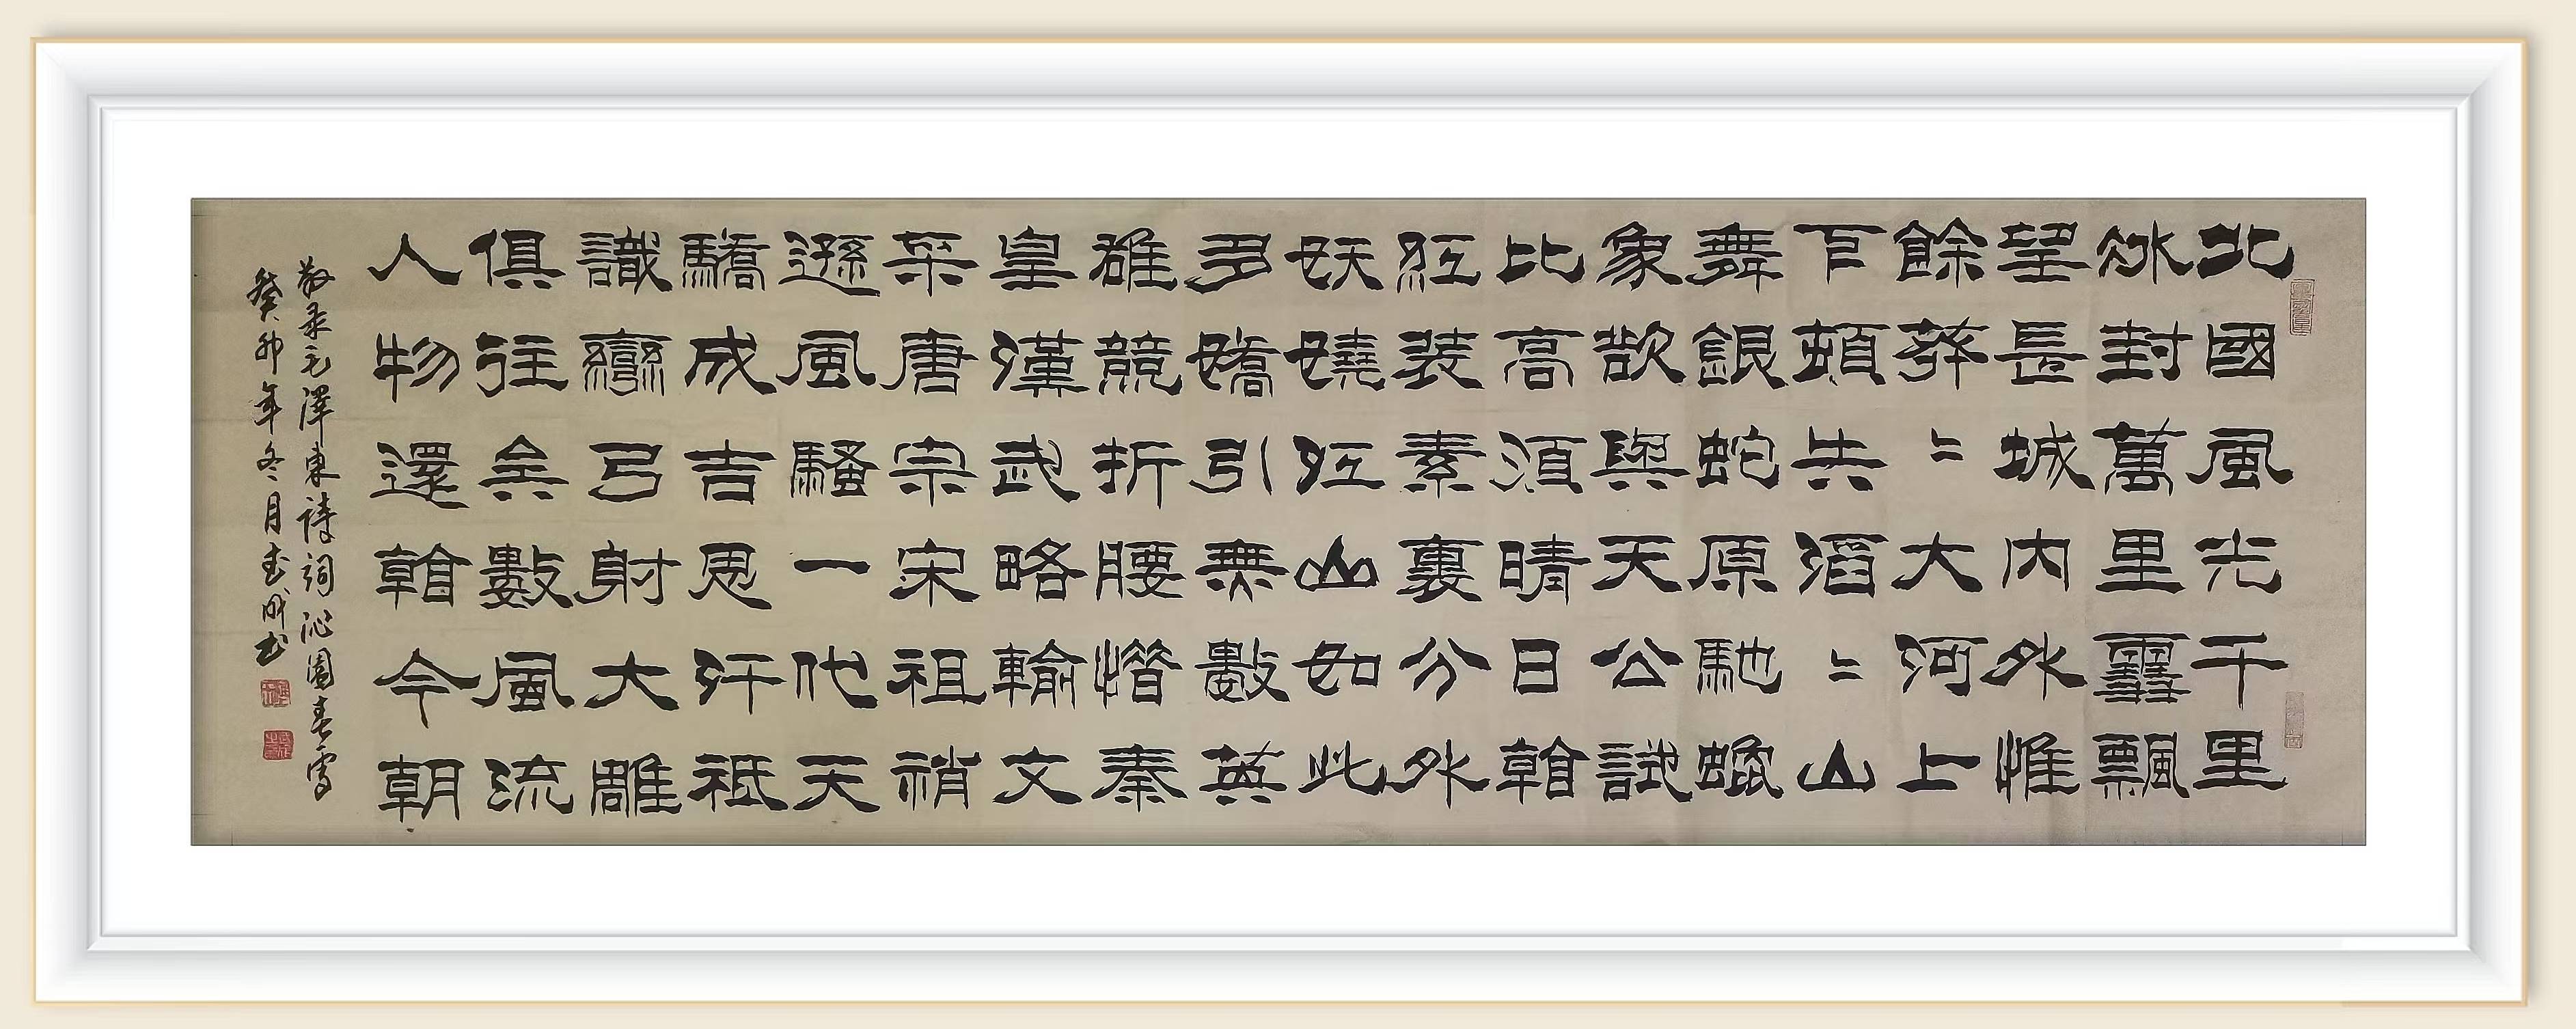 北國風光千里
冰封萬里雪飄
望長城內外惟
餘莽〻大河上
下頓失滔〻山
舞銀蛇原馳蠟
象欲與天公試
比高須晴日看
紅裝素裹分外
妖嬈江山如此
多嬌引無數英
雄競折腰惜秦
皇漢武略輸文
采唐宗宋祖稍
遜風騷一代天
驕成吉思汗祗
識彎弓射大雕
俱往矣數風流
人物還看今朝
敬录毛澤東詩詞沁園春雪
癸卯年冬月武成书